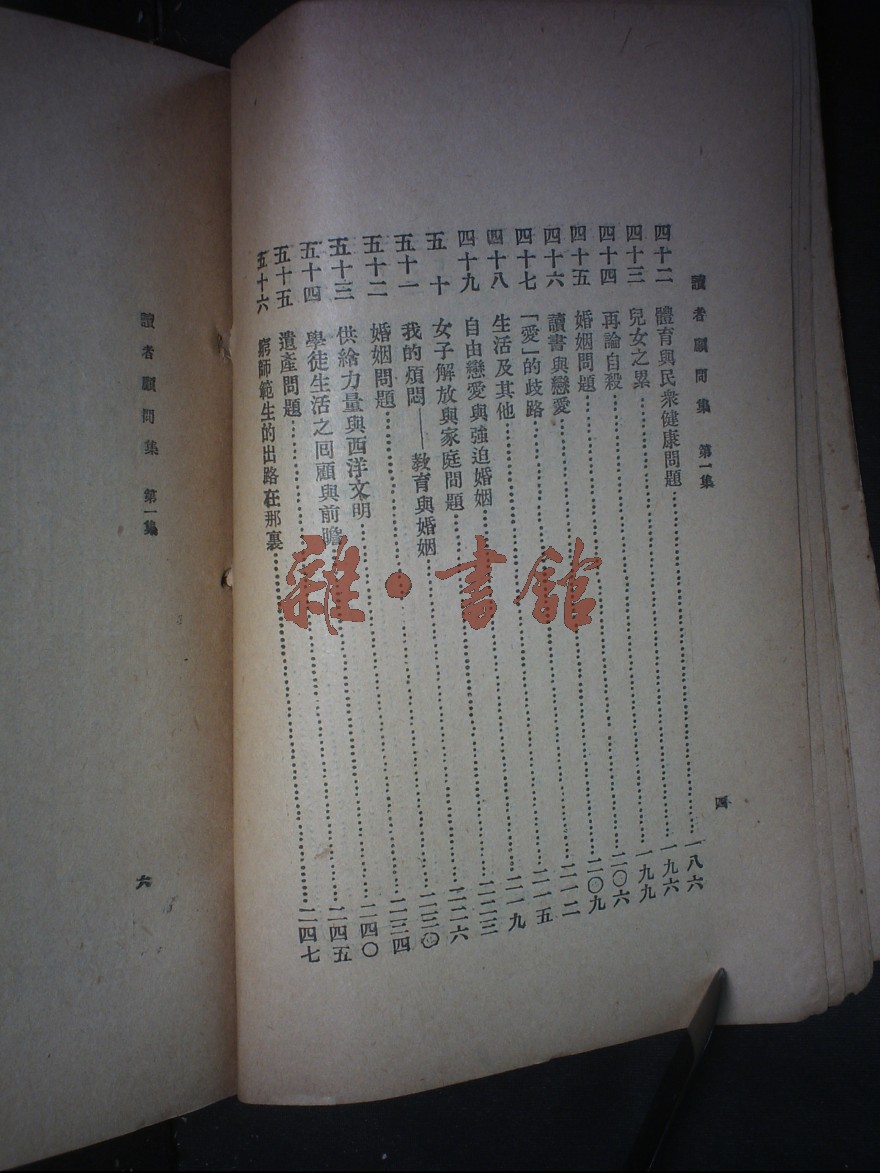 讀者顧問集 第一集 四
四十二 體育與民衆健康問題……一八六
四十三 兒女之累……一九六
四十四 再論自殺……一九九
四十五 婚姻問題……二〇六
四十六 讀書與戀愛……二〇九
四十七 「愛」的歧路……二一二
四十八 生活及其他……二一五
四十九 自由戀愛與強迫婚姻……二一九
五十 女子解放與家庭問題……二二三
五十一 我的煩悶——教育與婚姻……二二六
五十二 婚姻問題……二三〇
五十三 供給力量與西洋文明……二三四
五十四 學徒生活之回顧與前瞻……二四〇
五十五 遺產問題……二四五
五十六 窮師範生的出路在那裏……二四七
讀者顧問集 第一集 六
雜·書館